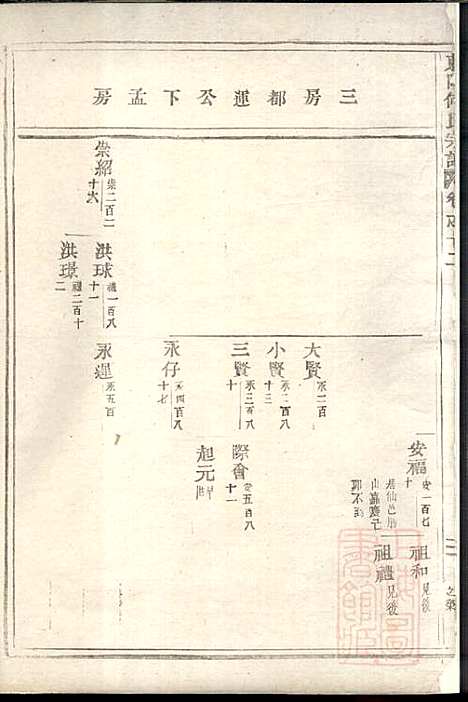 三房都運公下孟房
安福 安一百七十
祖和 見後
祖禮 見後
大賢 永一百
小賢 永二百八十三
三賢 永三百八十
永仔 永四百八十七
際會 安五百八十一
起元
崇紹 崇二百二十六
洪球 禮一百八十一
洪璟 禮二百十二
永運 永五百